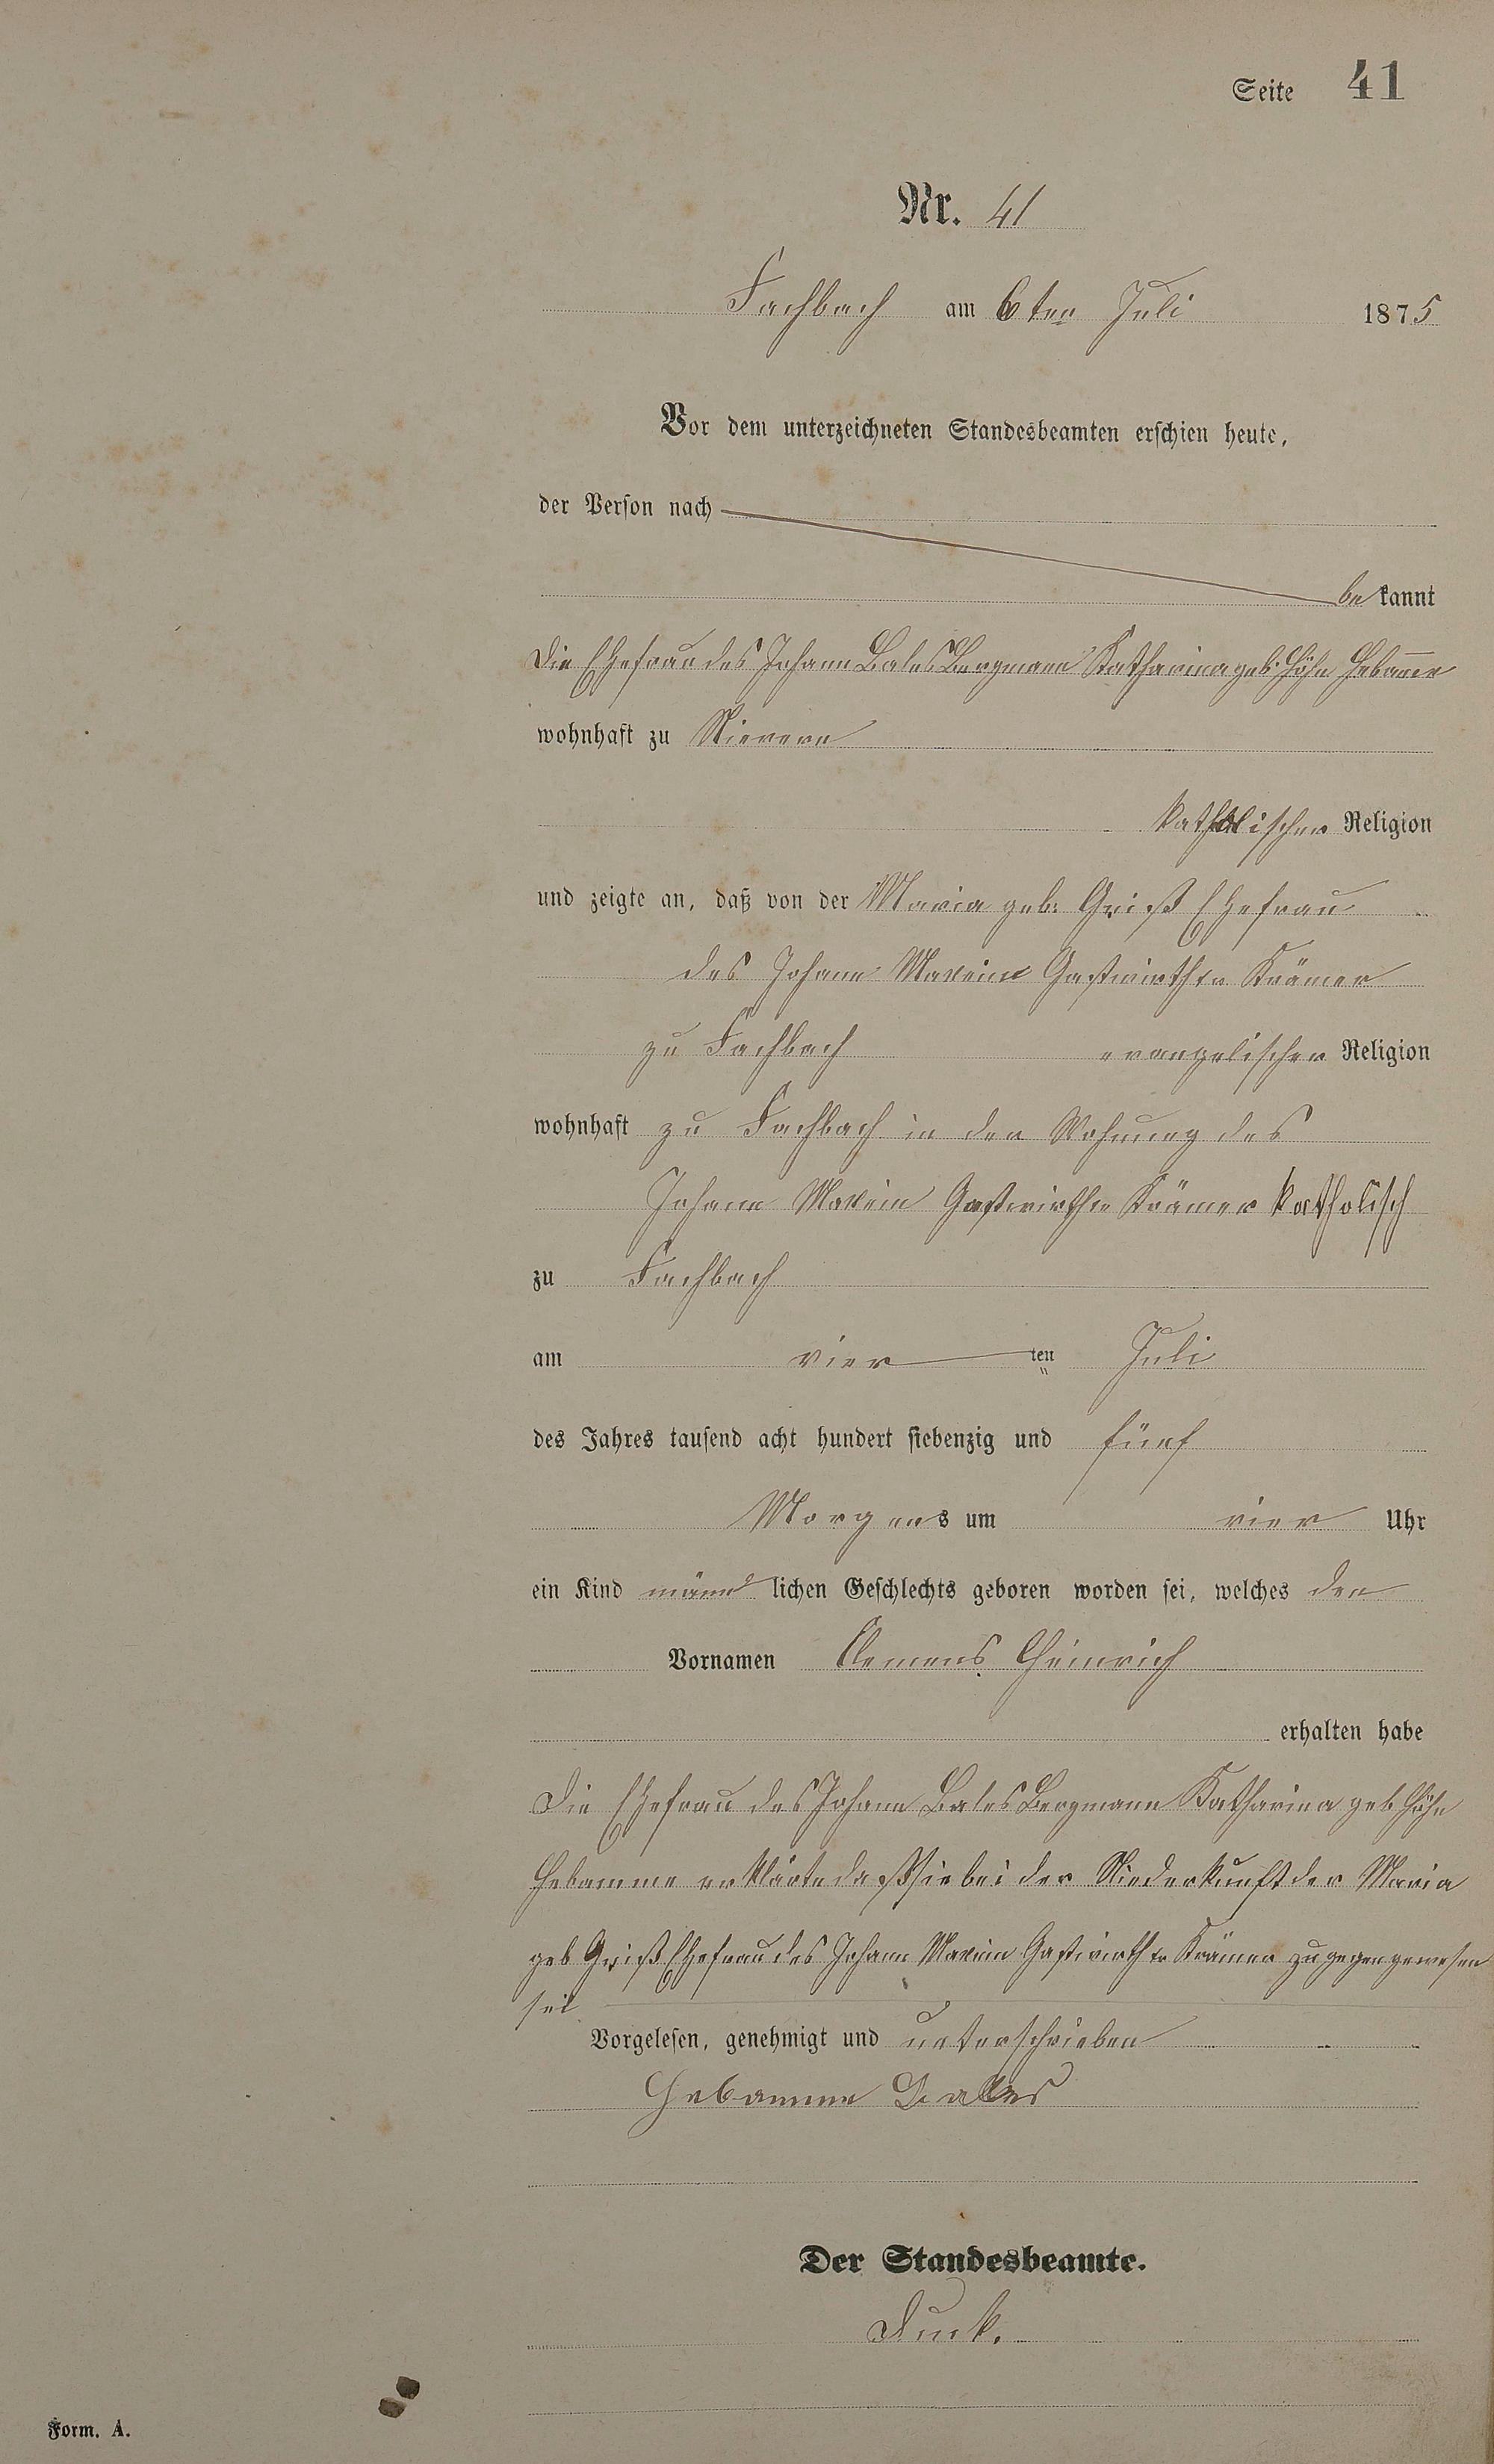 Seite 41
Nr. 41
Fachbach am 6ten Juli 1875
Vor dem unterzeichneten Standesbeamten erschien heute,
der Person nach
bekannt
Die Ehefrau des Johann Bales Bergmann Katharina geb. Höhn Hebamme
wohnhaft zu Nievern
katholischer Religion
und zeigte an, daß von der Maria geb: Grieß Ehefrau
des Johann Maxein Gastwirth u Krämer
zu Fachbach evangelischer Religion
wohnhaft zu Fachbach in der Wohnung des
Johann Maxein Gastwirth u Krämer katholisch
zu Fachbach
am vier ten Juli
des Jahres tausend acht hundert siebenzig und fünf
Morgens um vier Uhr
ein Kind männlichen Geschlechts geboren worden sei, welches den
Vornamen Clemens Heinrich
erhalten habe
Die Ehefrau des Johann Bales Bergmann Katharina geb Höhn
Hebamme erklärte daß sie bei der Niederkunft der Maria
geb Grieß Ehefrau des Johann Maxein Gastwirth u Krämer zugegen gewesen
sei
Vorgelesen, genehmigt und unterschrieben
Hebamme Bales
Der Standesbeamte.
Form. A.